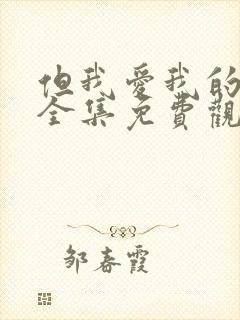 但我愛我的
全集免費觀
邹春霞